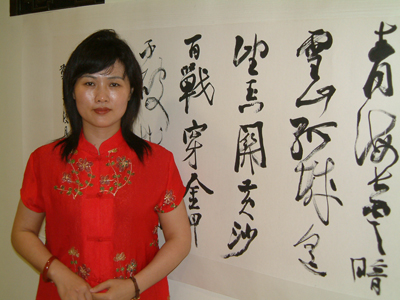 青海長雲暗
雪山孤城遥
望玉關黄沙
百戰穿金甲
不破